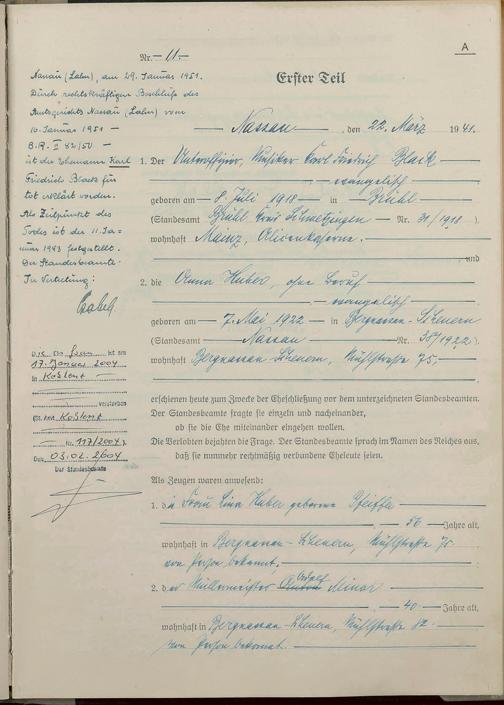 A
Nr. 11
Erster Teil
Nassau (Lahn), am 29. Januar 1951.
Durch rechtskräftigen Beschluß des
Amtsgerichts Nassau (Lahn) vom
10. Januar 1951 —
B.R. II 82/50 —
ist der Ehemann Karl
Friedrich Black für
tot erklärt worden.
Als Zeitpunkt des
Todes ist der 11. Ja-
nuar 1943 festgestellt.
Der Standesbeamte
In Vertretung:
Die Frau ist am
17. Januar 2004
in Koblenz
verstorben
Koblenz
Nr. 117/2004
Den 03.02.2004
Der Standesbeamte
Nassau, den 22. März 1941.
1. Der Unteroffizier, Musiker Karl Friedrich Black
evangelisch
geboren am 8. Juli 1918 in Brühl
(Standesamt Brühl Kreis Schwetzingen Nr. 31/1918)
wohnhaft Mainz, Alicenkaserne.
und
2. die Anna Huber, ohne Beruf
evangelisch
geboren am 7. Mai 1922 in Bergnassau-Scheuern
(Standesamt Nassau Nr. 38/1922)
wohnhaft Bergnassau-Scheuern, Mühlstraße 75.
erschienen heute zum Zwecke der Eheschließung vor dem unterzeichneten Standesbeamten.
Der Standesbeamte fragte sie einzeln und nacheinander,
ob sie die Ehe miteinander eingehen wollen.
Die Verlobten bejahten die Frage. Der Standesbeamte sprach im Namen des Reiches aus,
daß sie nunmehr rechtmäßig verbundene Eheleute seien.
Als Zeugen waren anwesend:
1. die Frau Lina Huber geborene Pfeiffer
50 Jahre alt,
wohnhaft in Bergnassau-Scheuern, Mühlstraße 75
von Person bekannt.
2. der Müllermeister Adolf Minor
40 Jahre alt,
wohnhaft in Bergnassau-Scheuern, Mühlstraße 82
von Person bekannt.